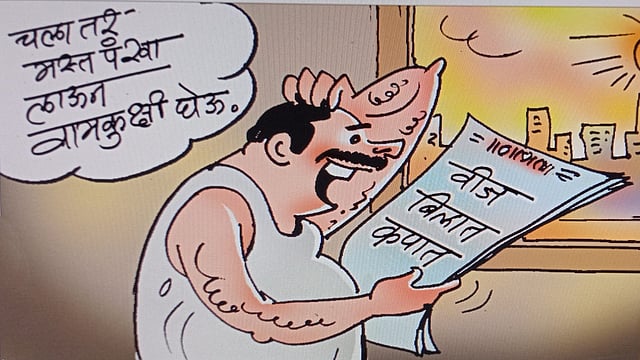 चला तर
मस्त पंखा
लाऊन
वामकुक्षी घेऊ.
वीज
बिलात
कपात